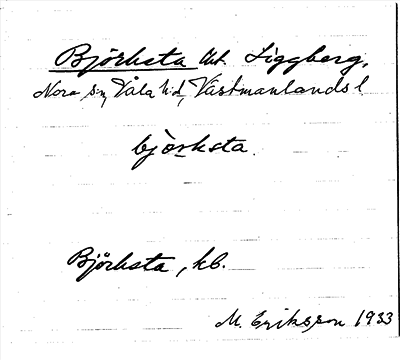 Björksta Utt. Siggberg,
Nora sn, Våla hd, Västmanlands l.
bjo̱rksta.
Björksta, kb.
M. Eriksson 1933